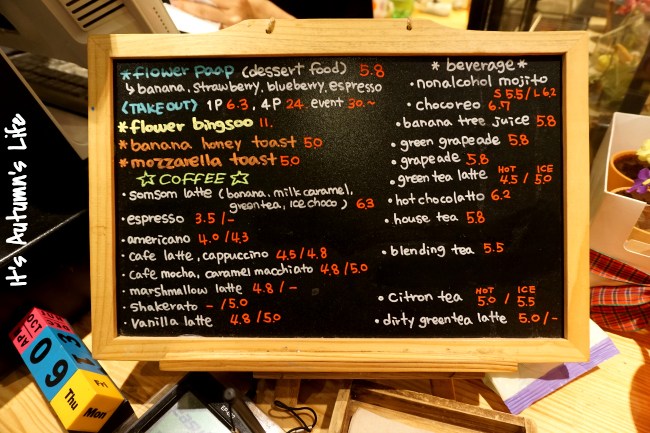 *flower paap (dessert food) 5.8
↳ banana, strawberry, blueberry, espresso
<TAKE OUT> 1P 6.3, 4P 24. event 30.~
*flower bingsoo 11.
*banana honey toast 5.0
*mozzarella toast 5.0
☆COFFEE☆
· somsom latte (banana, milk caramel,
greentea, ice choco) 6.3
· espresso 3.5 / -
· americano 4.0 / 4.3
· cafe latte, cappuccino 4.5 / 4.8
· cafe mocha, caramel macchiato 4.8 / 5.0
· marshmallow latte 4.8 / -
· shakerato - / 5.0
· vanilla latte 4.8 / 5.0
* beverage *
· nonalcohol mojito
S 5.5 / L 6.2
· chocoreo 6.7
· banana tree juice 5.8
· green grapeade 5.8
· grapeade 5.8
· green tea latte HOT 4.5 / ICE 5.0
· hot chocolatto 6.2
· house tea 5.8
· blending tea 5.5
· Citron tea HOT 5.0 / ICE 5.5
· dirty greentea latte 5.0 / -
It's Autumn's Life
OCT
09
13
Thu
Fri
Mon